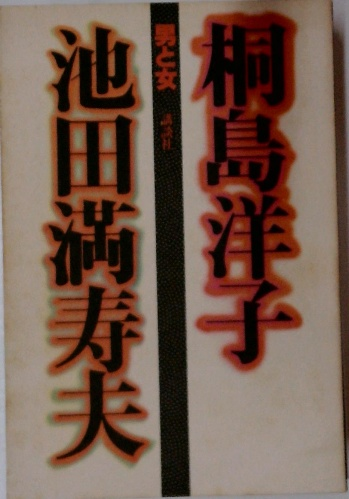 桐島洋子
男と女 講談社
池田満寿夫